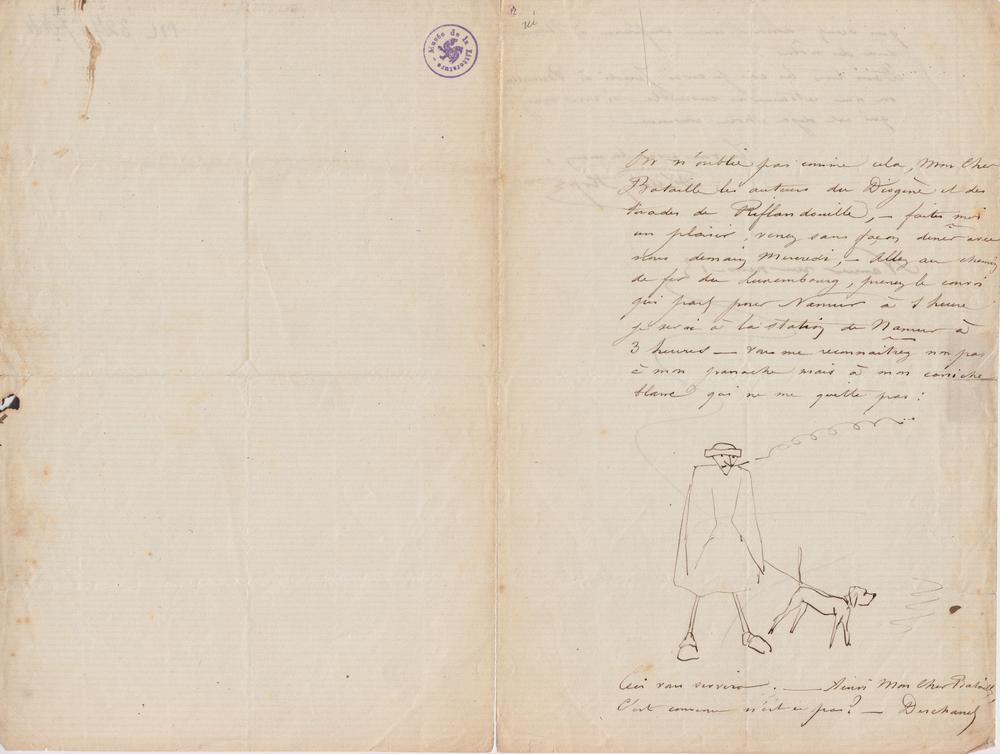 Musée de la Littérature
On n'oublie pas comme cela, Mon Cher
Bataille les auteurs du Diogène et des
tirades de Riflandouille, — faites moi
un plaisir, venez sans façon dîner avec
nous demain Mercredi, — Allez au chemin
de fer du Luxembourg, prenez le convoi
qui part pour Namur à 1 heure
je serai à la station de Namur à
3 heures — vous me reconnaîtrez non pas
à mon panache mais à mon caniche
blanc qui ne me quitte pas :
Ceci vous servira. — Ainsi Mon Cher Bataille,
C'est convenu n'est ce pas? — Deschanel